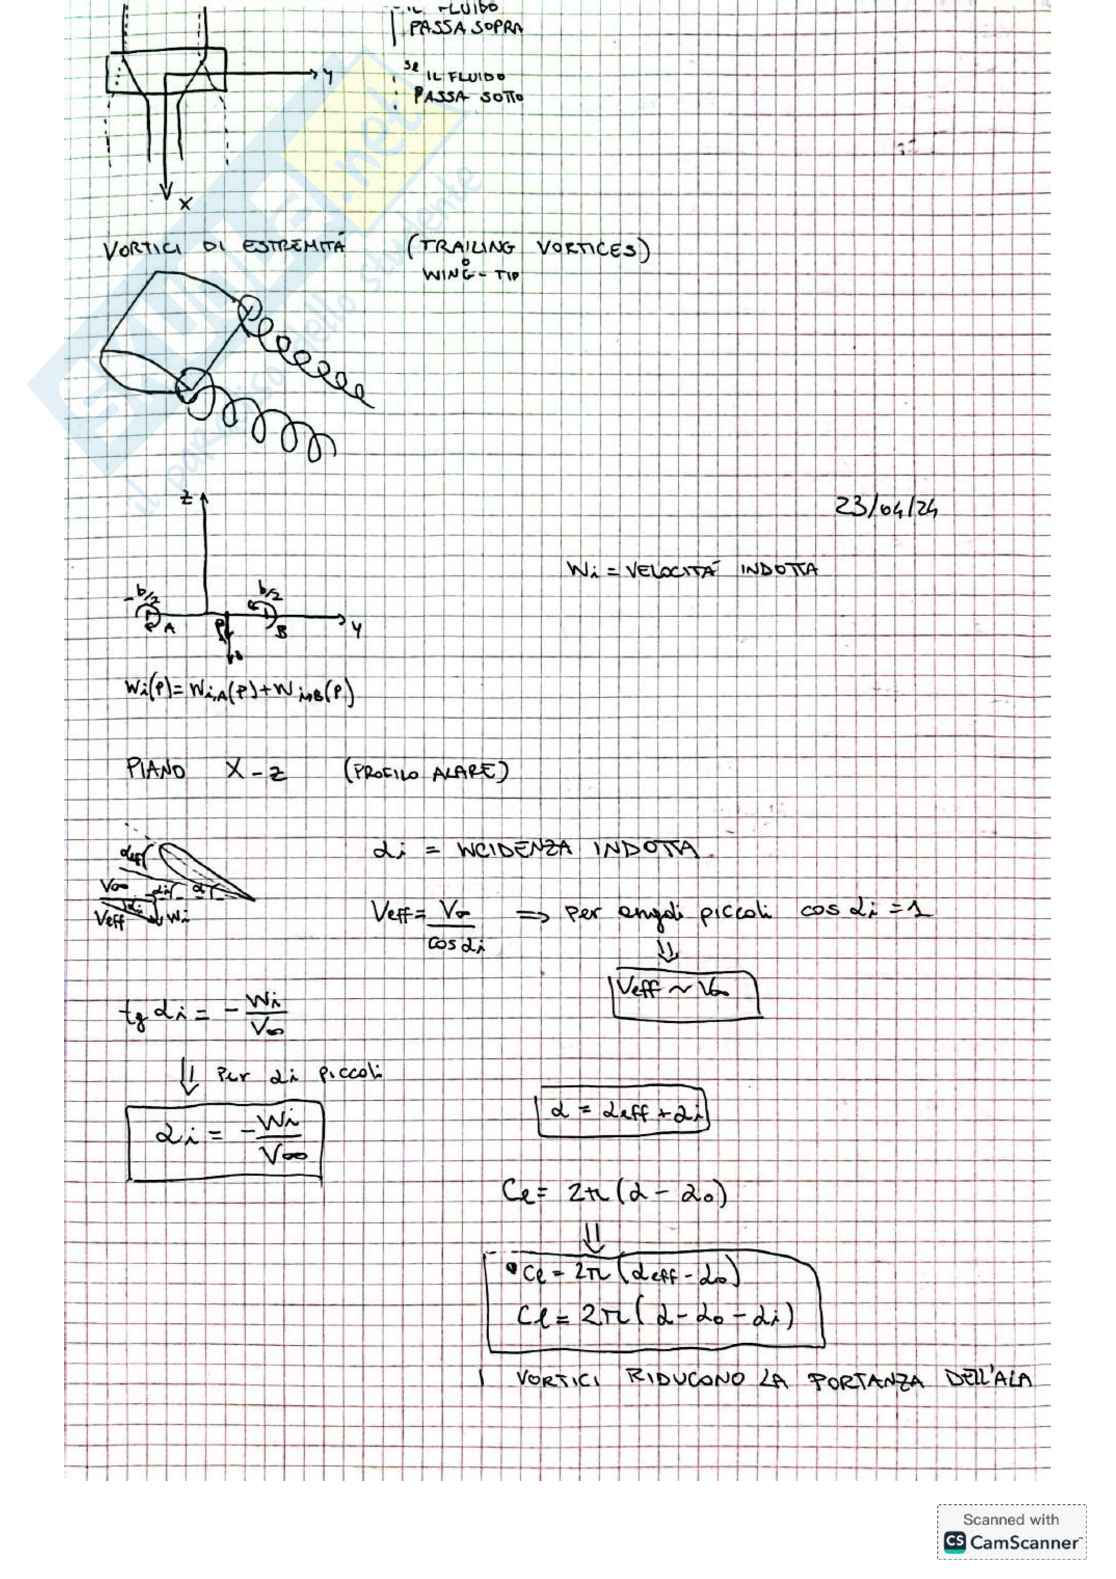 IL FLUIDO
PASSA SOPRA
se IL FLUIDO
PASSA SOTTO
y
x
VORTICI DI ESTREMITÀ (TRAILING VORTICES)
o
WING-TIP
z
23/04/24
Wi = VELOCITÀ INDOTTA
-b/2 b/2
A P B y
Wi(P) = Wi,A(P) + Wi,B(P)
PIANO X-Z (PROFILO ALARE)
αi = INCIDENZA INDOTTA
αeff
V∞ αi α
Veff αi Wi
Veff = V∞/cos αi => per angoli piccoli cos αi = 1
⇓
Veff ~ V∞
tg αi = - Wi/V∞
⇓ Per αi piccoli
αi = - Wi/V∞
α = αeff + αi
Cl = 2π(α - α0)
⇓
Cl = 2π(αeff - α0)
Cl = 2π(α - α0 - αi)
I VORTICI RIDUCONO LA PORTANZA DELL'ALA
Scanned with
CS CamScanner